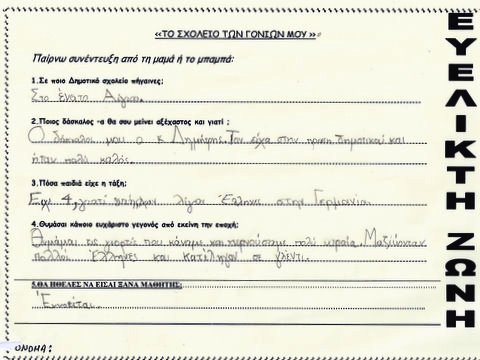 «ΤΟ ΣΧΟΛΕΙΟ ΤΩΝ ΓΟΝΙΩΝ ΜΟΥ »
Παίρνω συνέντευξη από τη μαμά ή το μπαμπά:
1.Σε ποιο Δημοτικό σχολείο πήγαινες;
Στο ένατο
2.Ποιος δάσκαλος -α θα σου μείνει αξέχαστος και γιατί ;
Ο δάσκαλός μου ο κ. Δημήτρης. Τον είχα στην τρίτη δημοτικού και
ήταν πολύ καλός.
3.Πόσα παιδιά είχε η τάξη;
Είχε 4, γιατί υπήρχαν λίγοι Έλληνες στην Γερμανία.
4.Θυμάσαι κάποιο ευχάριστο γεγονός από εκείνη την εποχή;
Θυμάμαι τις γιορτές που κάναμε και περνούσαμε πολύ ωραία. Μαζεύονταν
πολλοί Έλληνες και κατέληγαν σε γλέντι.
5.ΘΑ ΗΘΕΛΕΣ ΝΑ ΕΙΣΑΙ ΞΑΝΑ ΜΑΘΗΤΗΣ;
Εννοείται.
ΟΝΟΜΑ:
ΕΥΕΛΙΚΤΗ ΖΩΝΗ